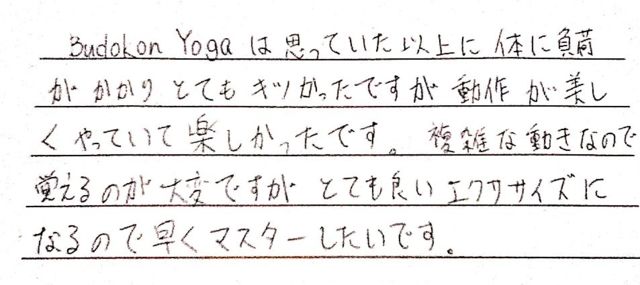 Budokon Yoga は思っていた以上に体に負荷
がかかりとてもキツかったですが動作が美し
くやっていて楽しかったです。複雑な動きなので
覚えるのが大変ですがとても良いエクササイズに
なるので早くマスターしたいです。